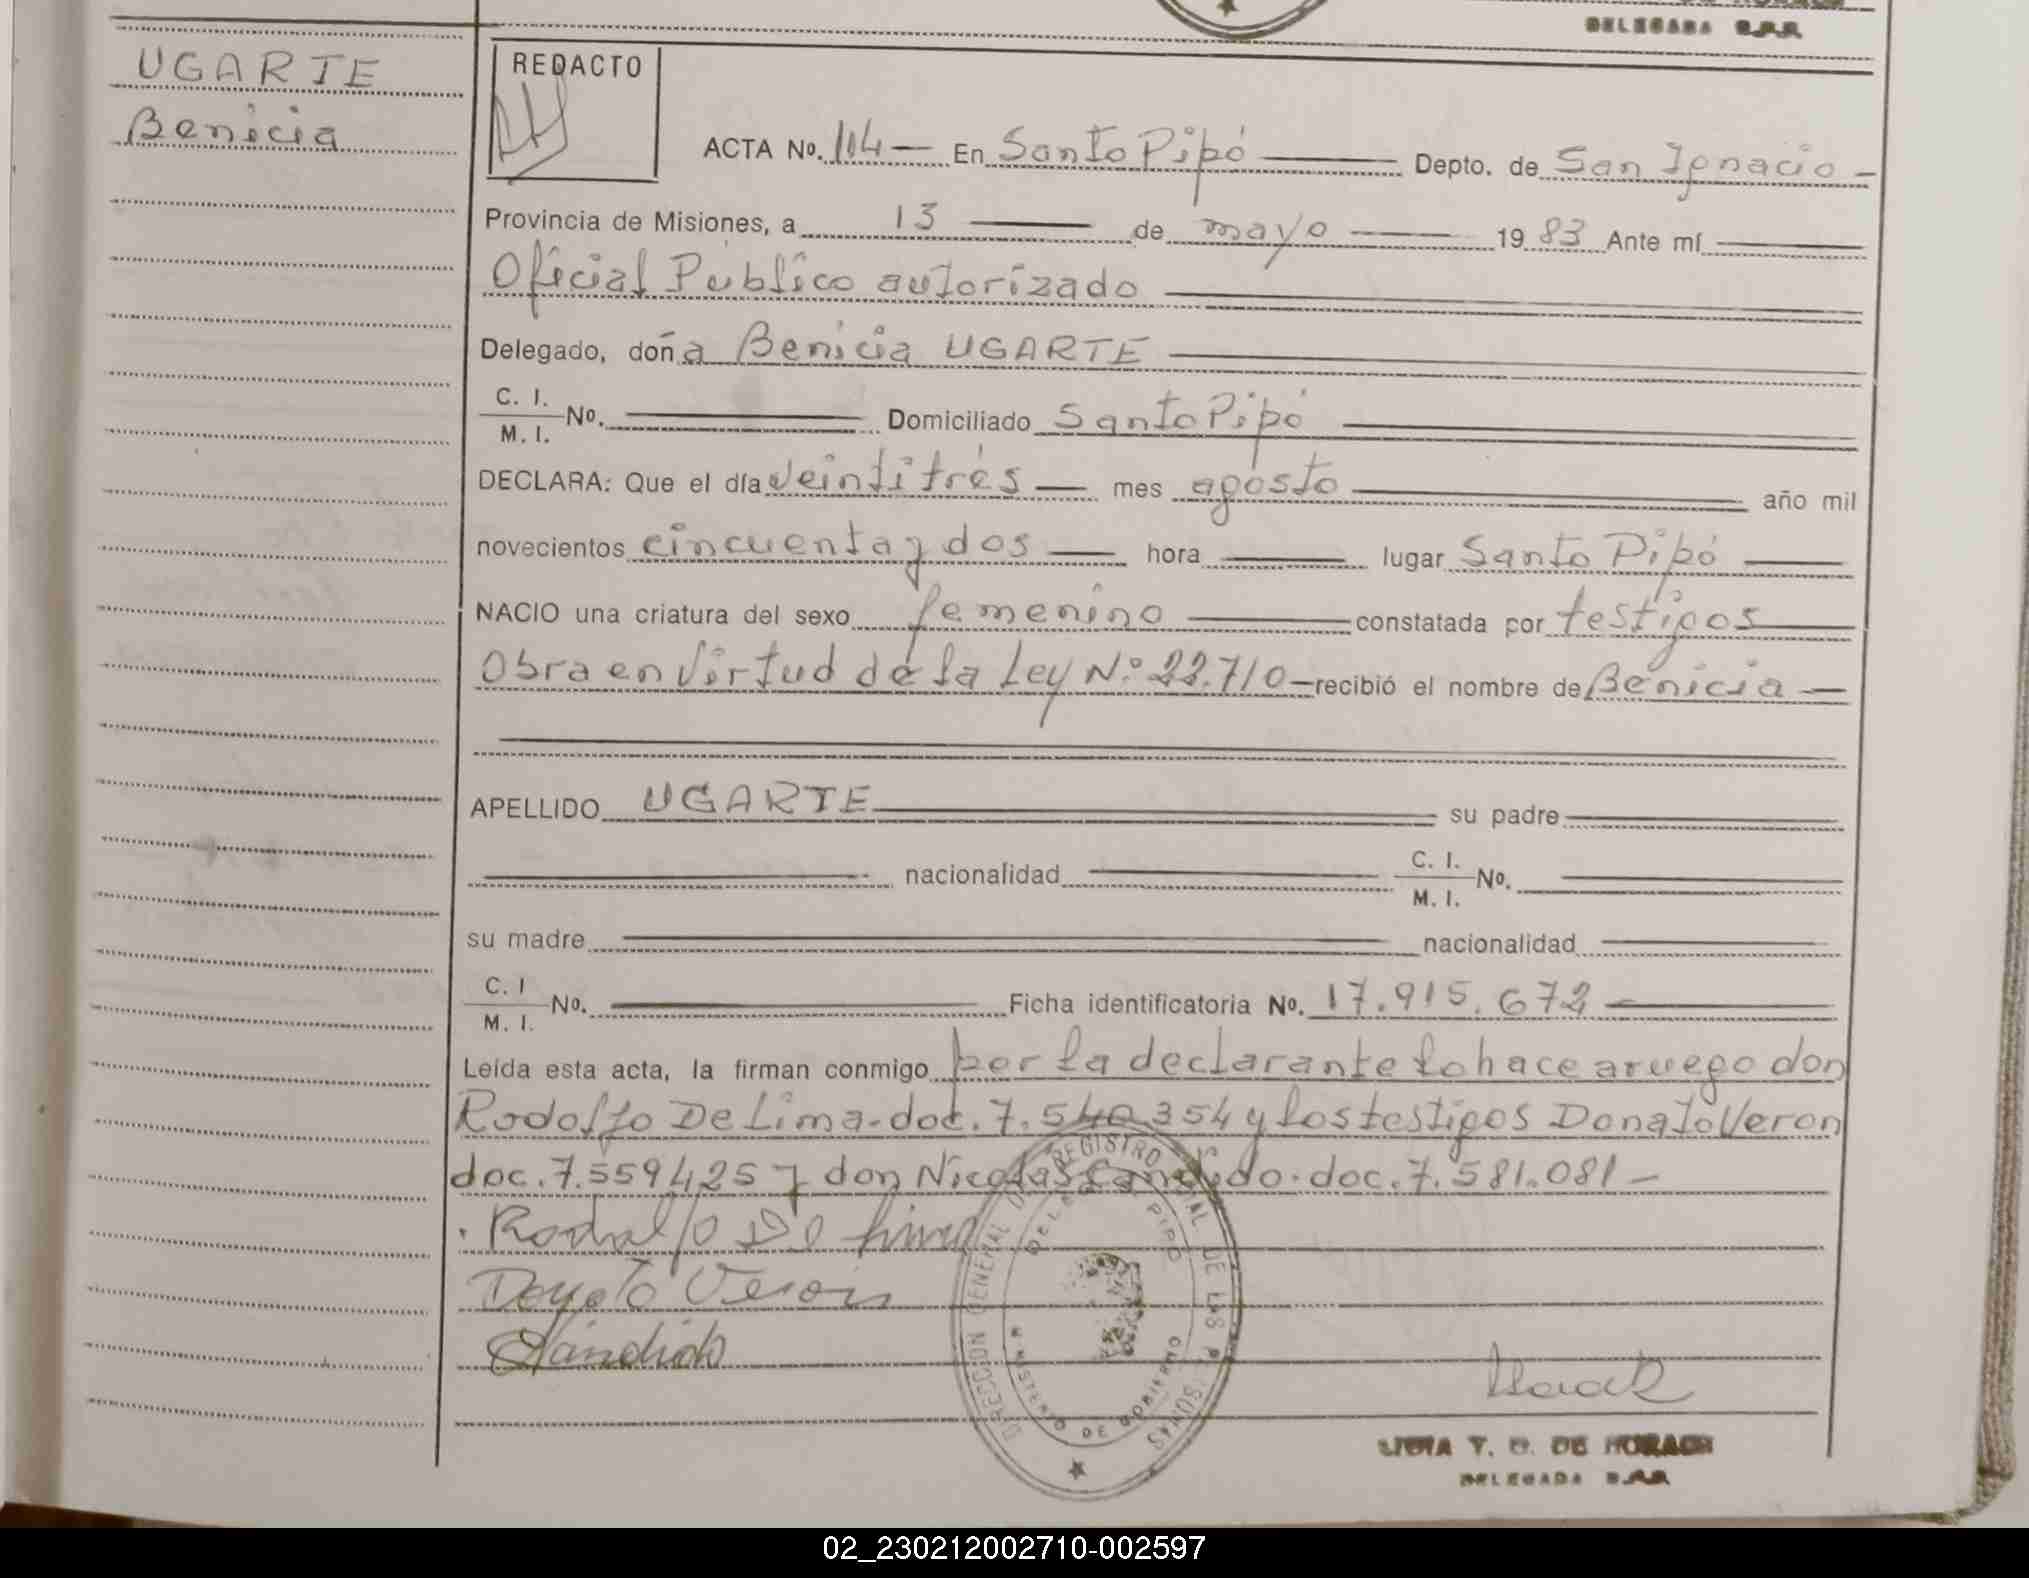 DELEGADA
UGARTE
Benicia
REDACTO
ACTA No. 114 En Santo Pipó Depto. de San Ignacio
Provincia de Misiones, a 13 de mayo 1983 Ante mí
Oficial Público autorizado
Delegado, doña Benicia UGARTE
C. I.
M. I. No. Domiciliado Santo Pipó
DECLARA: Que el día veintitrés mes agosto año mil
novecientos cincuenta y dos hora lugar Santo Pipó
NACIO una criatura del sexo femenino constatada por testigos
Obra en virtud de la Ley N° 22.710 recibió el nombre de Benicia
APELLIDO UGARTE su padre
nacionalidad C. I.
M. I. No.
su madre nacionalidad
C. I
M. I. No. Ficha identificatoria No. 17.915.672
Leída esta acta, la firman conmigo por la declarante lo hace a ruego don
Rodolfo De Lima. doc. 7.540.354 y los testigos Donato Veron
doc. 7.559425 y don Nicolas Candido. doc. 7.581.081
Rodolfo De Lima
Donato Veron
Candido
DIRECCION GENERAL DEL REGISTRO DE LAS PERSONAS
PIPO
MINISTERIO DE GOBIERNO
DE
DELEGADA
02_230212002710-002597